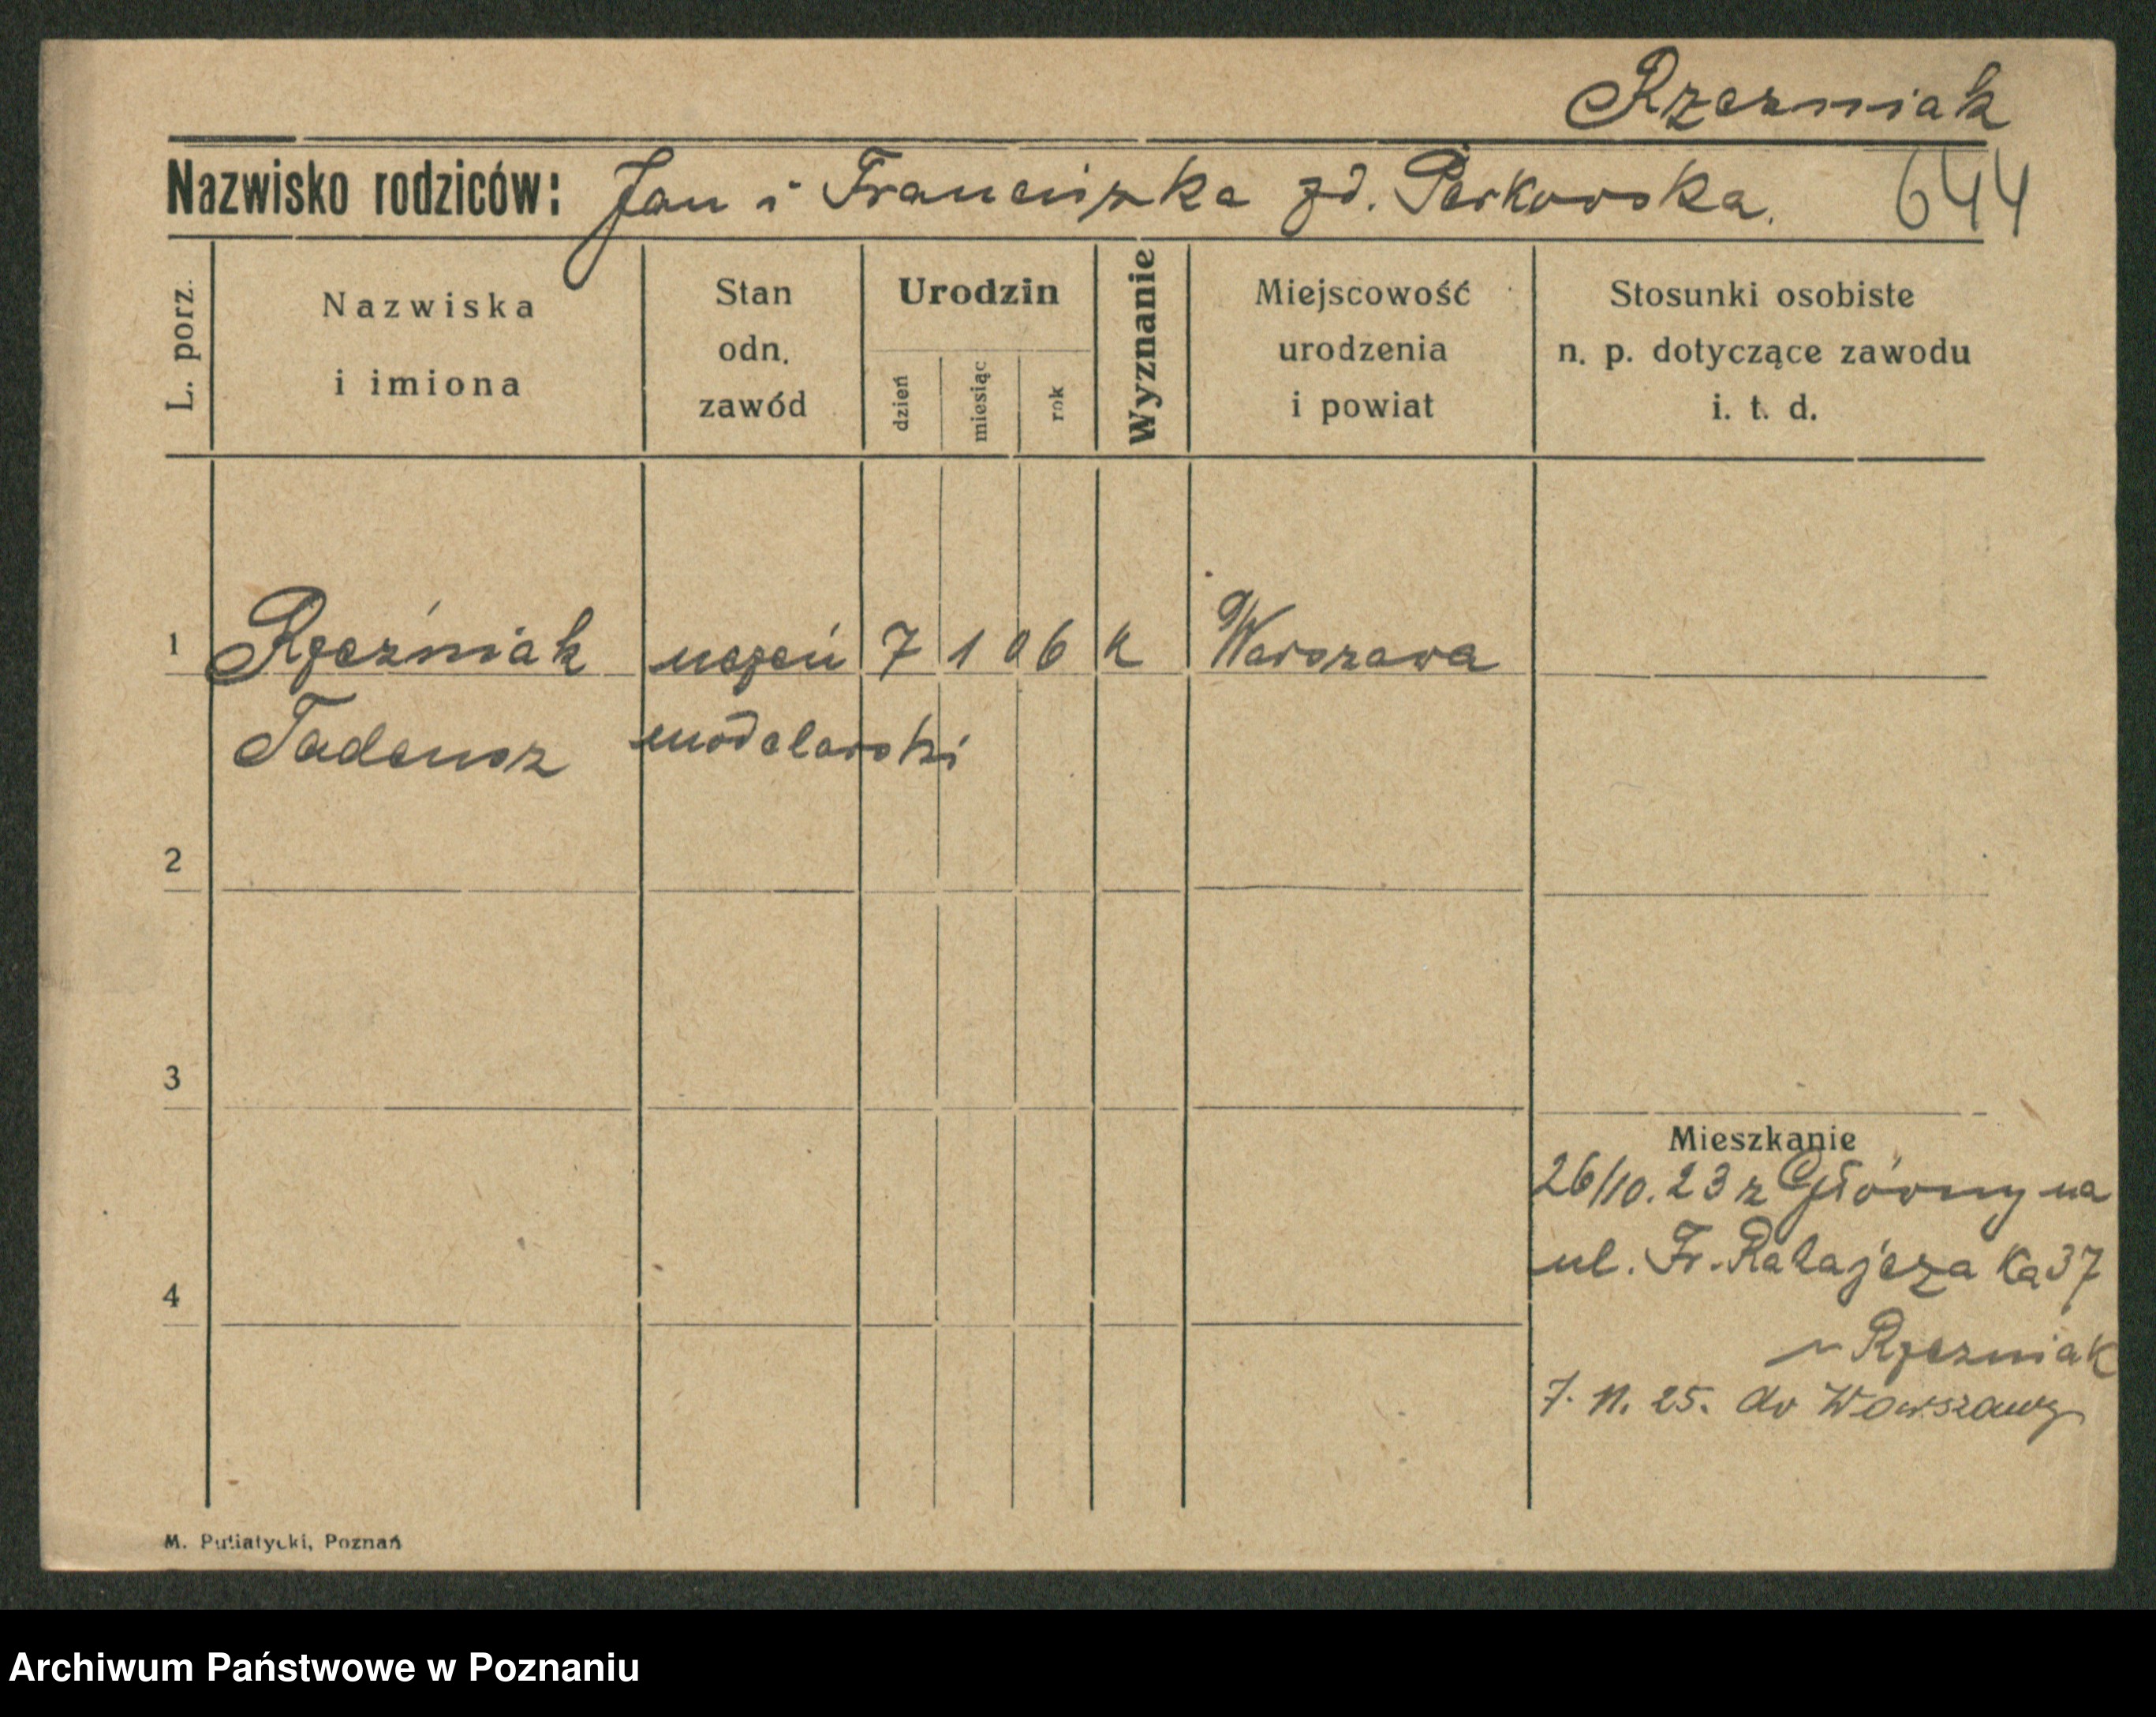 Rzezniak
Nazwisko rodziców: Jan i Franciszka zd. Perkowska. 644
L. porz.
Nazwiska
i imiona
Stan
odn.
zawód
Urodzin
dzień
miesiąc
rok
Wyznanie
Miejscowość
urodzenia
i powiat
Stosunki osobiste
n. p. dotyczące zawodu
i. t. d.
1 Rzeźniak uczeń 7 1 06 k Warszawa
Tadeusz modelarski
2
3
Mieszkanie
26/10. 23 z Główny na
ul. Fr. Ratajczaka 37
4
Rzezniak
7. 11. 25. do Warszawy
M. Putiatycki, Poznań
Archiwum Państwowe w Poznaniu